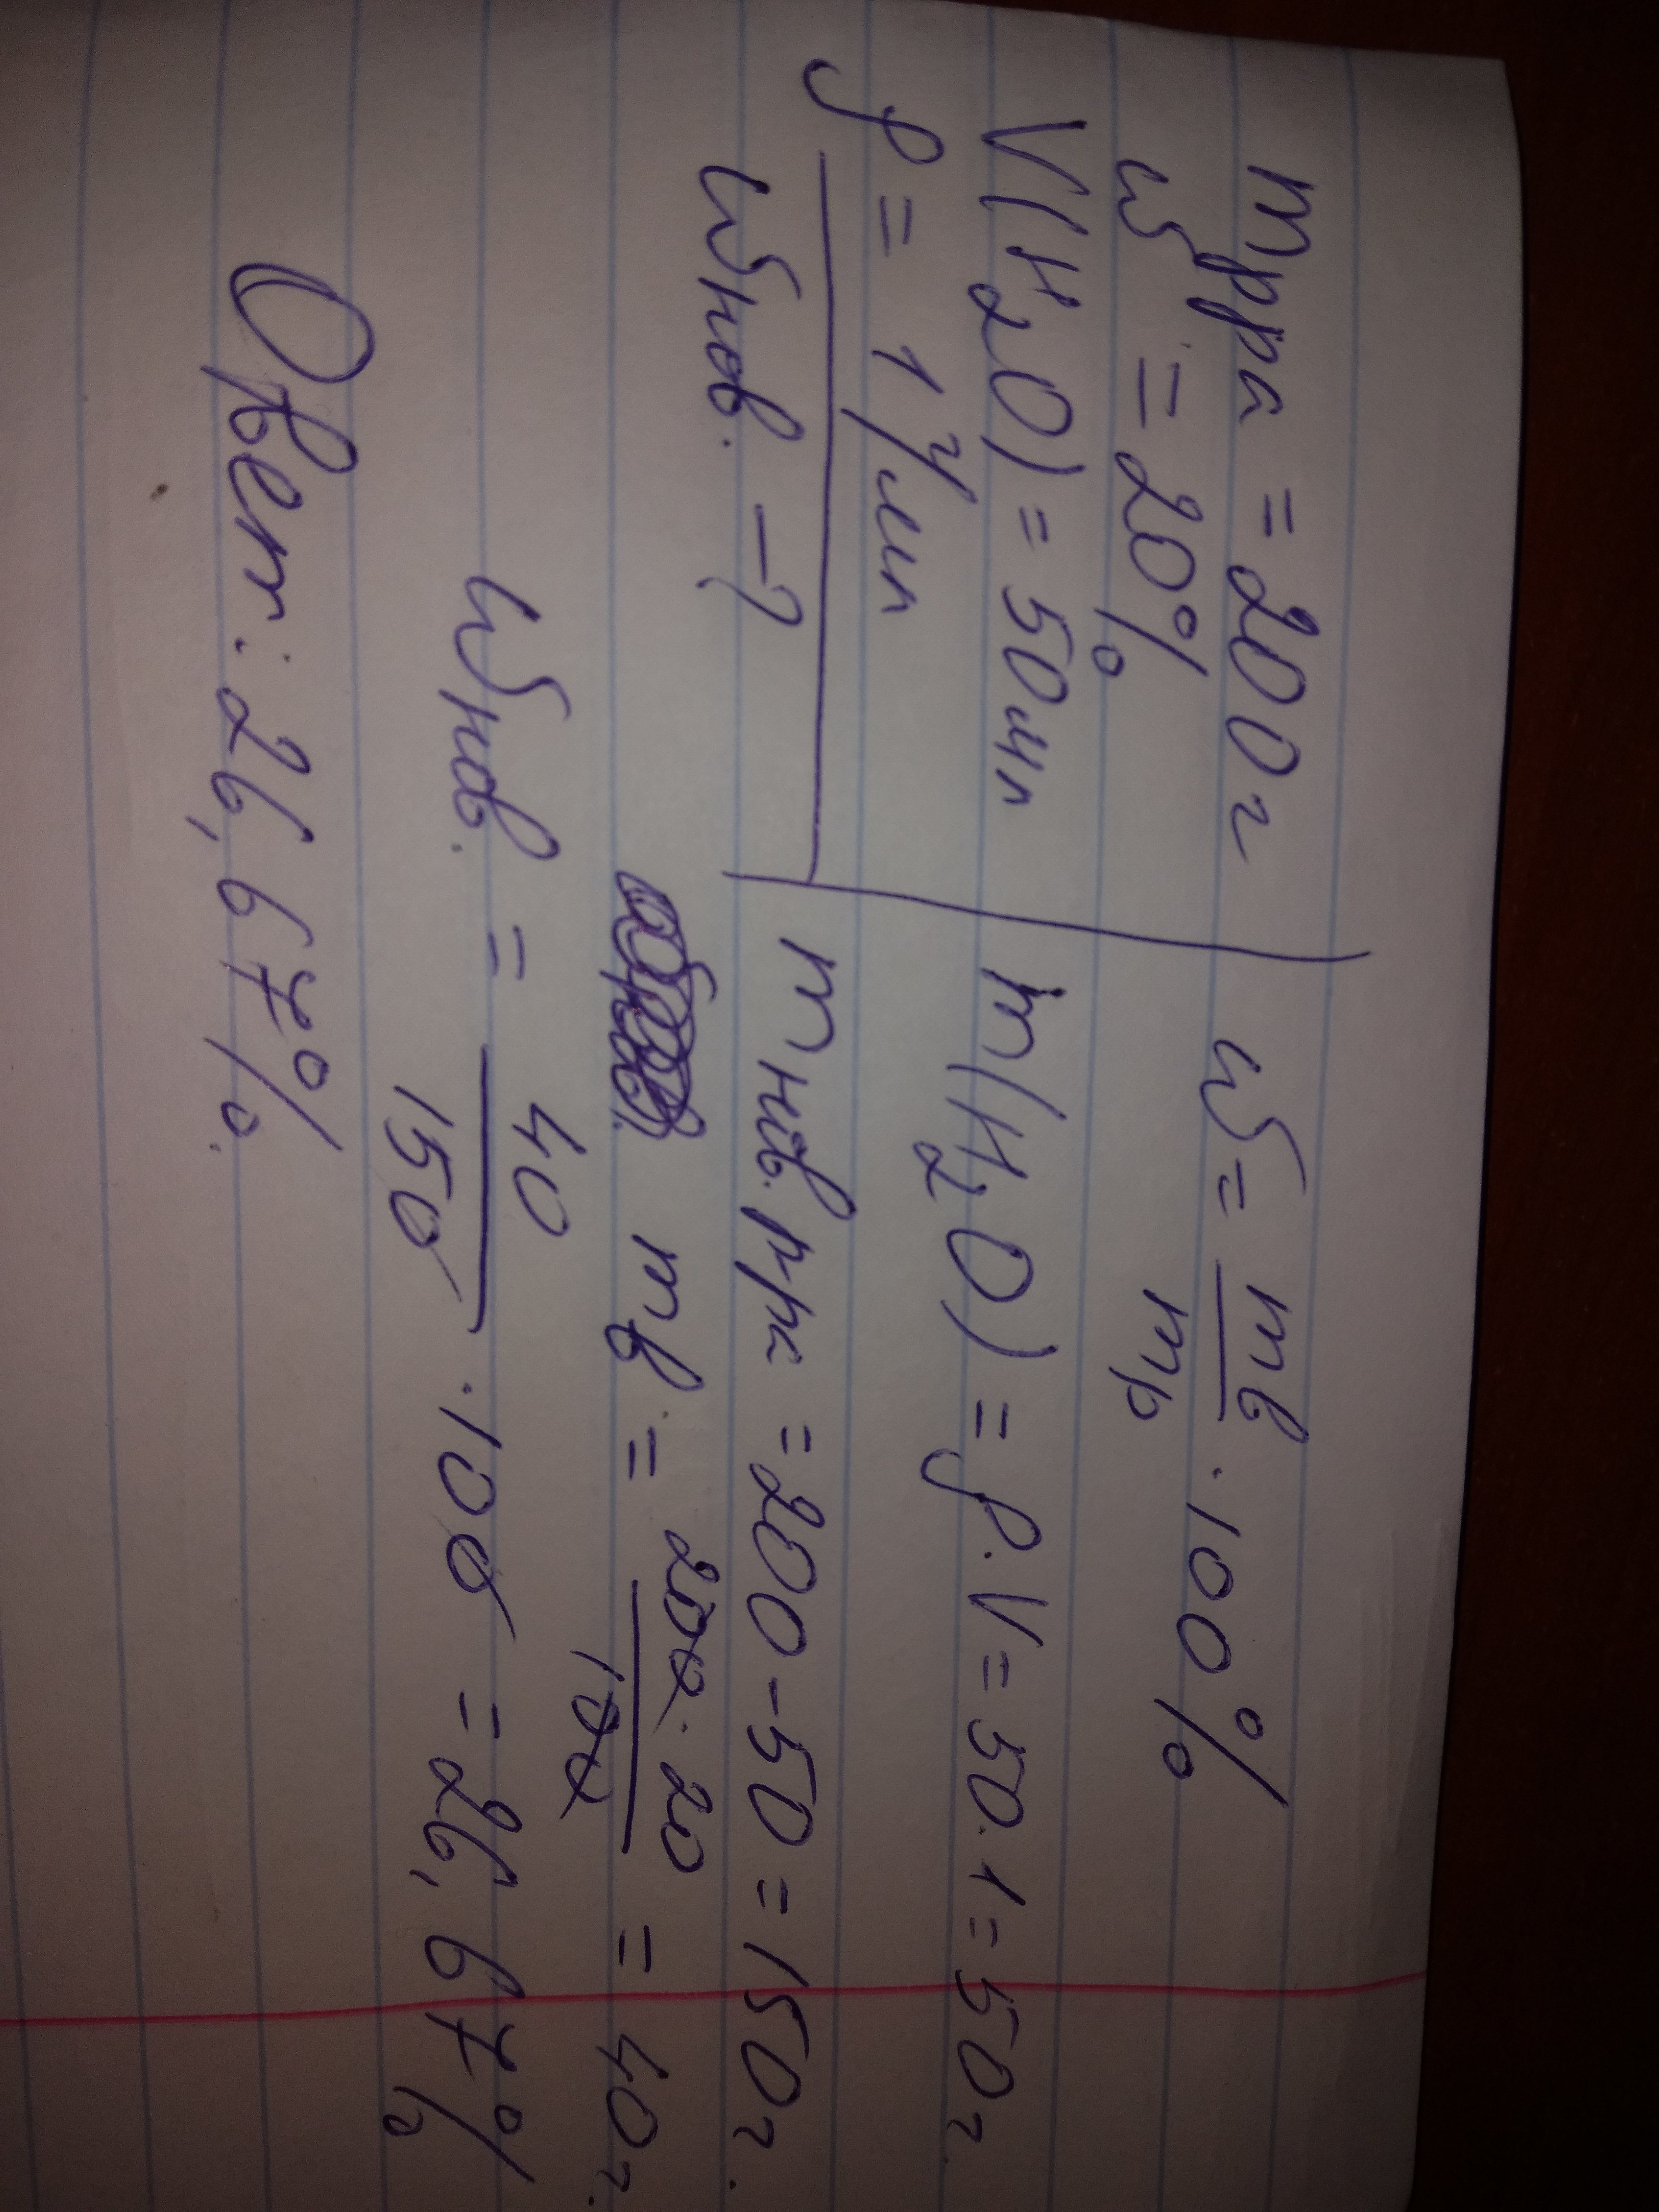 mрра = 200 г
ω = 20%
V(H₂O) = 50мл
ρ = 1 г/мл
ωнов. – ?
ω = mв/mр · 100%
m(H₂O) = ρ · V = 50 · 1 = 50 г.
mнов. рра = 200 – 50 = 150 г.
mв = 200 · 20/100 = 40 г.
ωнов. = 40/150 · 100 = 26,67%
Ответ: 26,67%.